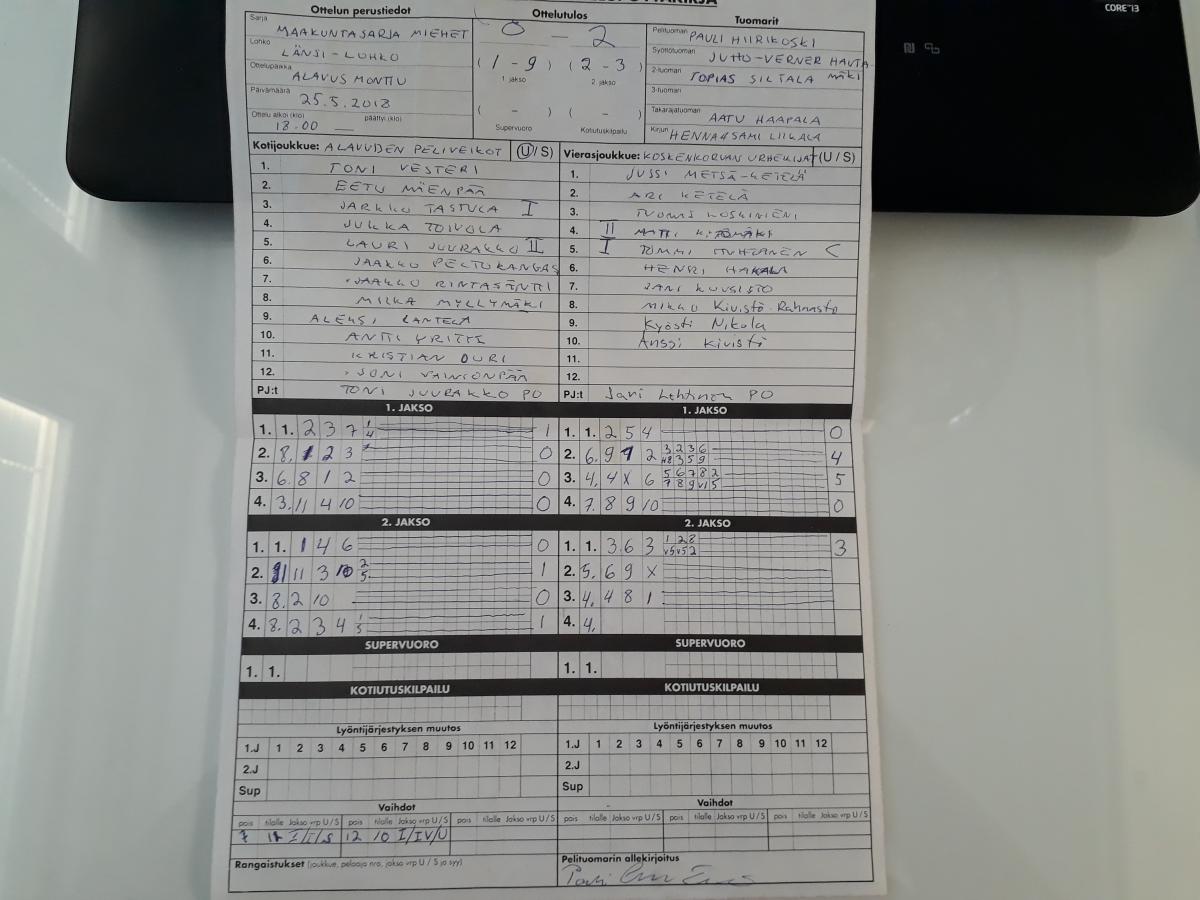 CORE i3
Ottelun perustiedot
Ottelutulos
Tuomarit
Sarja MAAKUNTASARJA MIEHET
Lohko LÄNSI-LOHKO
Ottelupaikka ALAVUS MONTTU
Päivämäärä 25.5.2018
Ottelu alkoi (klo) päättyi (klo)
18.00 —
0 - 2
(1 - 9) (2 - 3)
1. jakso 2. jakso
( - ) ( -
Supervuoro Kotiutuskilpailu
Pelituomari PAULI HIIRIKOSKI
Syöttötuomari JUHO-VERNER HAUTA
2-tuomari TOPIAS SILTALA MÄKI
3-tuomari
Takarajatuomari AATU HAAPALA
Kirjuri HENNA & SAMI LIIKALA
Kotijoukkue: ALAVUDEN PELIVEIKOT (U/S)
1. TONI VESTERI
2. EETU MÄENPÄÄ
3. JARKKO TASTULA I
4. JUKKA TOIVOLA
5. LAURI JUURAKKO II
6. JAAKKO PELTOKANGAS
7. JAAKKO RINTASÄNTTI
8. MIIKA MYLLYMÄKI
9. ALEKSI LANTELA
10. ANTTI YRITTI
11. KRISTIAN OURI
12. JONI VAINIONPÄÄ
PJ:t TONI JUURAKKO PO
Vierasjoukkue: KOSKENKORVAN URHEILIJAT (U/S)
1. JUSSI METSÄ-KETELÄ
2. ARI KETELÄ
3. TUOMAS KOSKINIENI
4. II
5. I TOMMI <
6. HENRI HAKALA
7. JANI KUUSISTO
8. MIKKO Kivistö-Rahnasto
9. Kyösti Nikola
10. Anssi Kivistö
11.
12.
PJ:t Jari Lehtinen PO
1. JAKSO
1. 1. 2 3 7 1 4 1
2. 8. 1 2 3 0
3. 6. 8 1 2 0
4. 3. 11 4 10 0
1. JAKSO
1. 1. 2 5 4 0
2. 6. 9 1 2 4
3. 4. 4 X 6 5 6 7 8 2 5
4. 7. 8 9 10 0
2. JAKSO
1. 1. 1 4 6 0
2. 11 3 10 2 5 1
3. 8. 2 10 0
4. 8. 2 3 4 1 5 1
2. JAKSO
1. 1. 3 6 3 1 2 8 3
2. 5. 6 9 X
3. 4. 4 8 1
4. 4.
SUPERVUORO
1. 1.
SUPERVUORO
1. 1.
KOTIUTUSKILPAILU
KOTIUTUSKILPAILU
Lyöntijärjestyksen muutos
1.J 1 2 3 4 5 6 7 8 9 10 11 12
2.J
Sup
Lyöntijärjestyksen muutos
1.J 1 2 3 4 5 6 7 8 9 10 11 12
2.J
Sup
Vaihdot
pois tilalle Jakso vrp U/S pois tilalle Jakso vrp U/S pois tilalle Jakso vrp U/S
7 11 I/I/S 12 10 I/IV/U
Vaihdot
pois tilalle Jakso vrp U/S pois tilalle Jakso vrp U/S pois tilalle Jakso vrp U/S
Rangaistukset (joukkue, pelaaja nro, jakso vrp U/S ja syy)
Pelituomarin allekirjoitus